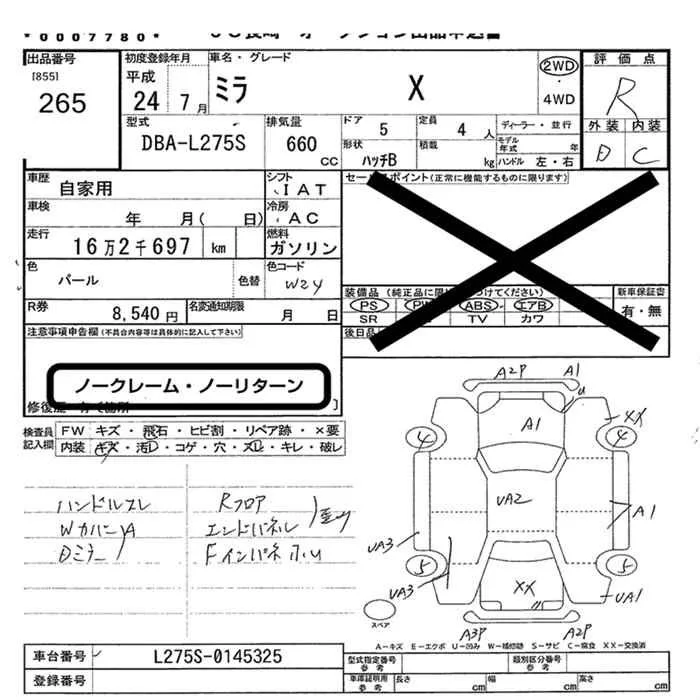 *0007780*
出品番号
[855]
265
初度登録年月
平成
24 7月
車名・グレード
ミラ X
2WD
・
4WD
評価点
R
外装 内装
D C
型式
DBA-L275S
排気量
660
CC
ドア 5
定員 4人
形状
ハッチB
積載
kg
ディーラー・並行
モデル年式 年
ハンドル 左・右
車歴
自家用
シフト
IAT
車検
年 月( 日)
冷房
AC
走行
16万2千697 km
燃料
ガソリン
色
パール
色替
色コード
W24
R券
8,540円
名変通知期限
月 日
セールスポイント(正常に機能するものに限ります)
装備品
PS ABS エアB
SR TV カワ
新車保証書
有・無
後日品
注意事項申告欄(不具合内容等は具体的に記入して下さい)
ノークレーム・ノーリターン
検査員記入欄
FW キズ・飛石・ヒビ割・リペア跡・×要
内装 キズ・汚れ・コゲ・穴・スレ・キレ・破レ
ハンドルスレ
WカバーA
Dミラー
Rフロア
エンドパネル
Fインパネ
A2P A1
A1
XX
4 4
UA2
A1
UA3
5 5
UA3
XX
UA1
A3P A2P
スペア
A−キズ E−エクボ U−凹み W−補修跡 S−サビ C−腐食 XX−交換済
車台番号
L275S-0145325
登録番号
型式指定番号
参考
類別区分番号
参考
車庫証明用
参考
長さ cm
幅 cm
高さ cm